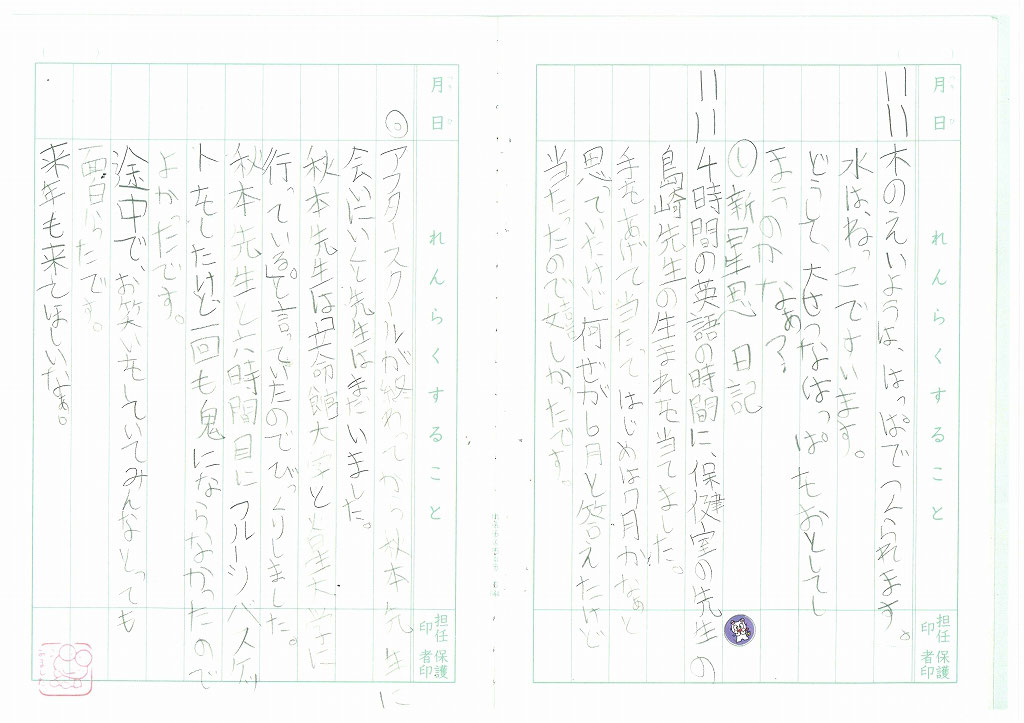 月 日
れんらくすること
担任印 保護者印
11/11 木のえいようは、はっぱでつくられます。
水は、ねっこですいます。
どうして、大せつなはっぱをおとしてし
まうのかなぁ?
① 新星思 日記
11/11 4時間の英語の時間に、保健室の先生の
島崎先生の生まれを当てました。
手をあげて当たってはじめは7月かなぁと
思っていたけど何ぜか6月と答えたけど
当たったので嬉しかったです。
月 日
れんらくすること
担任印 保護者印
◎ アフタースクールが終わってから秋本先生に
会いにいくと先生はまだいました。
秋本先生は立命館大学と
行っている。」と言っていたのでびっくりしました。
秋本先生と六時間目にフルーツバスケッ
トをしたけど一回も鬼にならなかったので
よかったです。
途中で、お笑いをしていてみんなとっても
面白かったです。
来年も来てほしいなぁ。